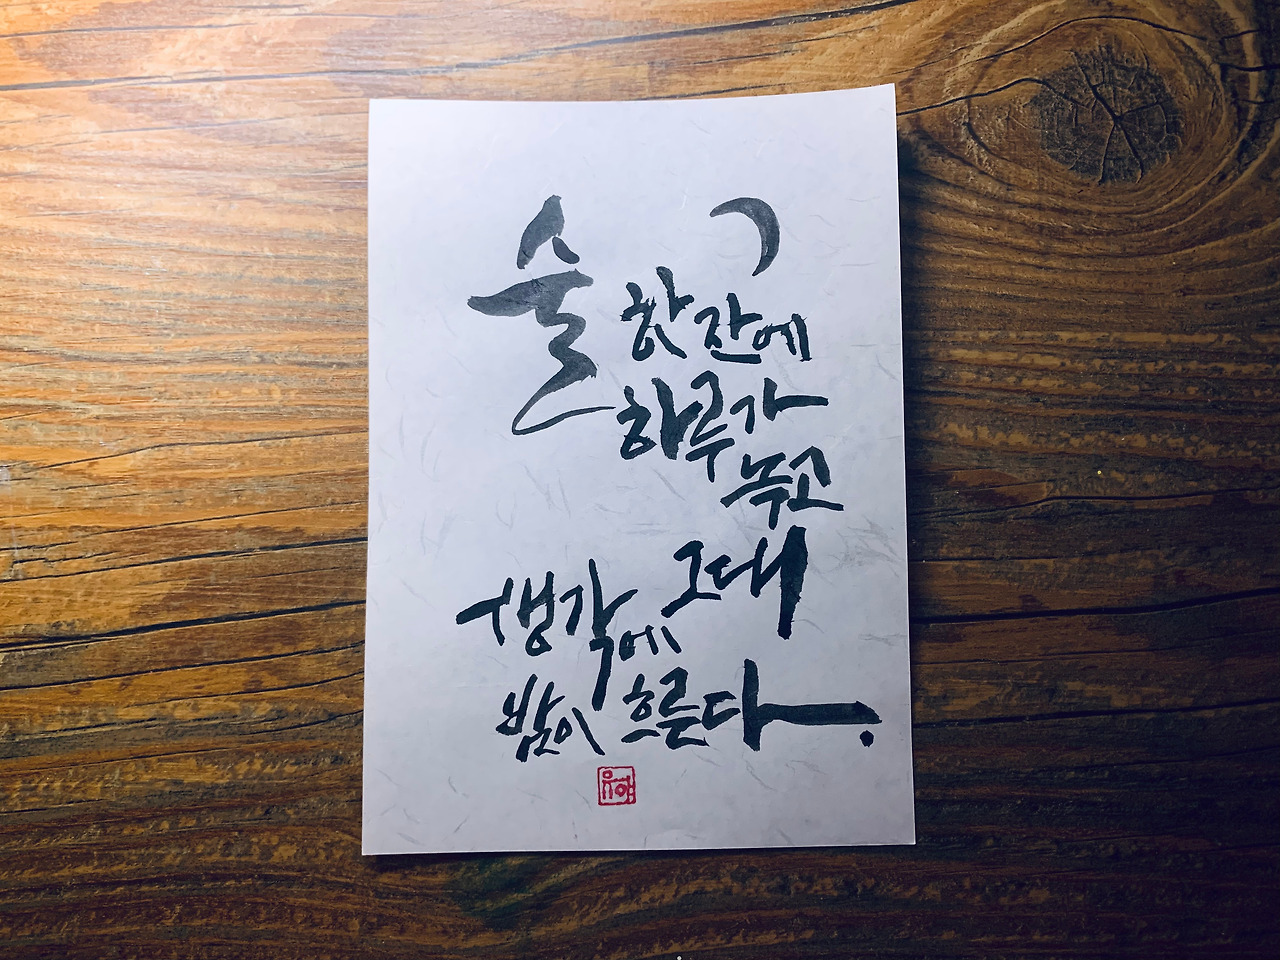 술 한 잔에
하루가
녹고
그대
생각에
밤이 흐른다.